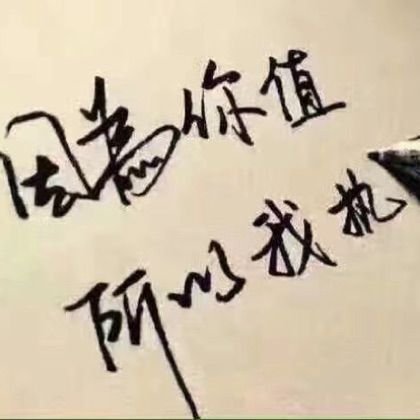 因為你值
所以我执